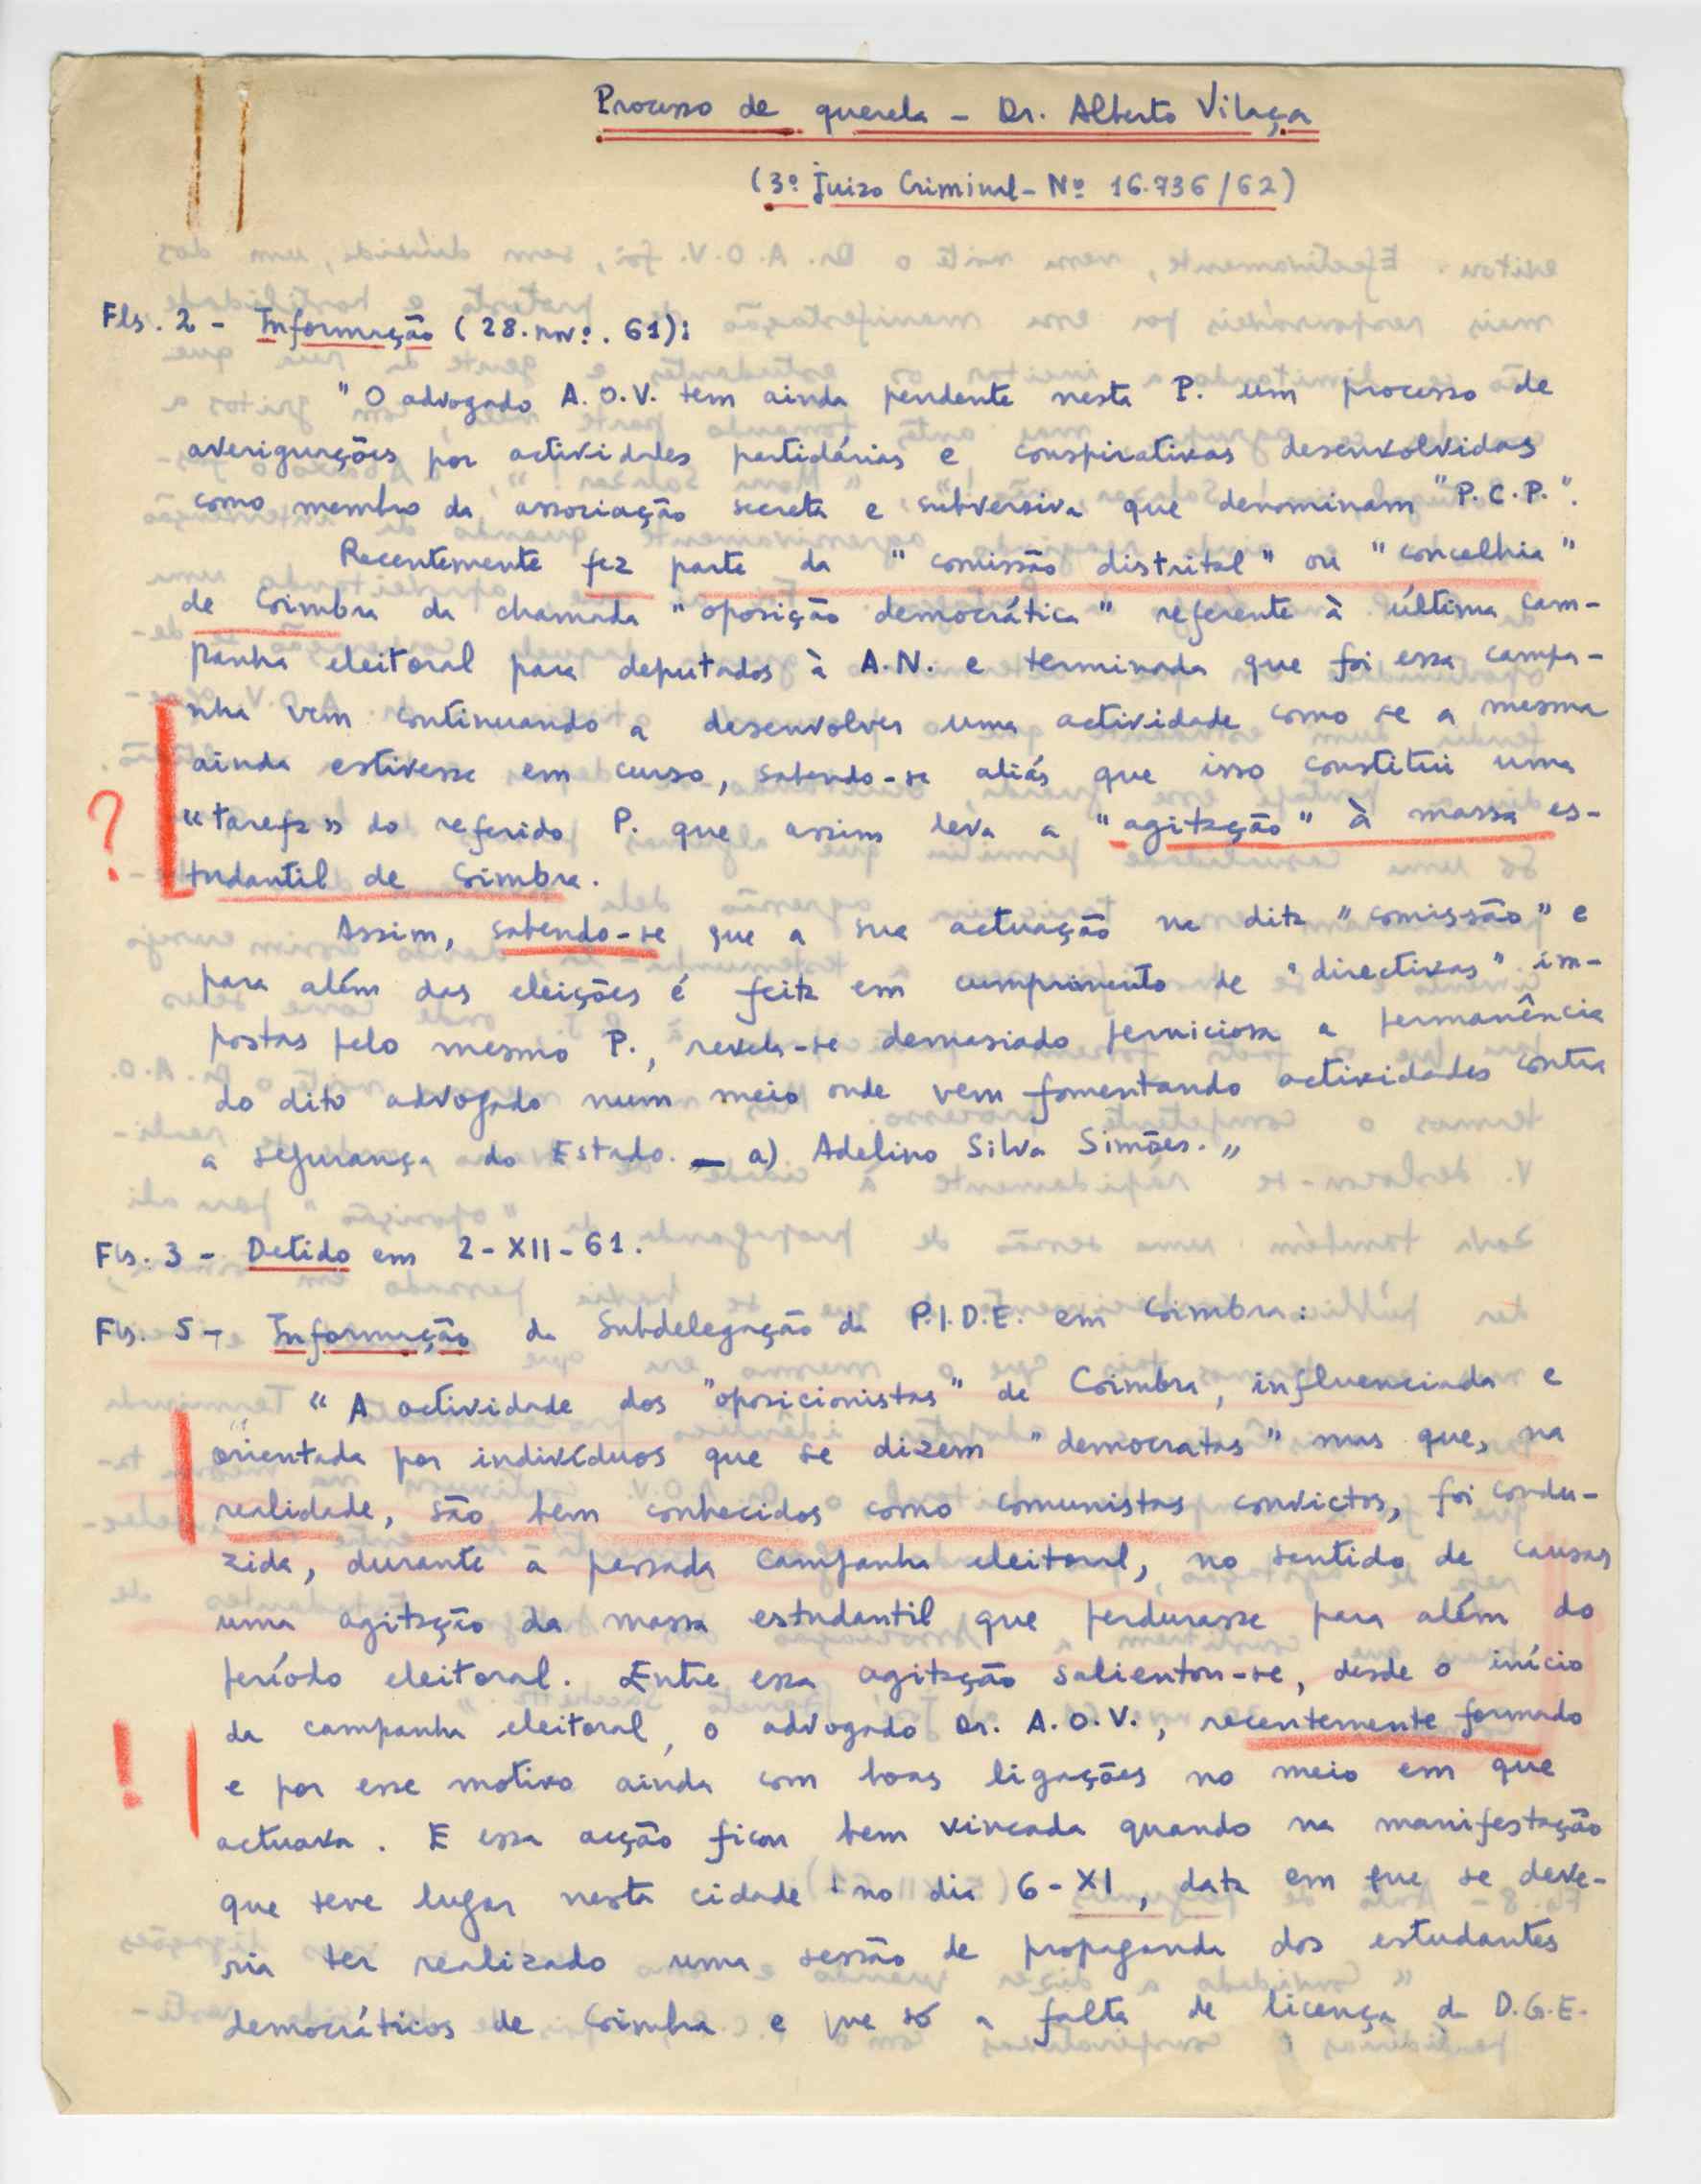 Processo de querela - Dr. Alberto Vilaça
(3º Juizo Criminal - Nº 16.736/62)
Fls. 2 - Informação (28.nov.º.61):
" O advogado A.O.V. tem ainda pendente nesta P. um processo de
averiguações por actividades partidárias e conspirativas desenvolvidas
como membro da associação secreta e subversiva que denominam "P.C.P.".
Recentemente fez parte da "comissão distrital" ou "concelhia"
de Coimbra da chamada "oposição democrática" referente à última cam-
panha eleitoral para deputados à A.N. e terminada que foi essa campa-
nha vem continuando a desenvolver uma actividade como se a mesma
ainda estivesse em curso, sabendo-se aliás que isso constitui uma
? "tarefa" do referido P. que assim leva a "agitação" à massa es-
tudantil de Coimbra.
Assim, sabendo-se que a sua actuação na dita "comissão" e
para além das eleições é feita em cumprimento de "directivas" im-
postas pelo mesmo P., revela-se demasiado perniciosa a permanência
do dito advogado num meio onde vem fomentando actividades contra
a segurança do Estado. — a) Adelino Silva Simões. "
Fls. 3 - Detido em 2-XII-61.
Fls. 5 - Informação da Subdelegação da P.I.D.E. em Coimbra:
" A actividade dos "oposicionistas" de Coimbra, influenciada e
orientada por indivíduos que se dizem "democratas" mas que, na
realidade, são bem conhecidos como comunistas convictos, foi condu-
zida, durante a passada campanha eleitoral, no sentido de causar
uma agitação da massa estudantil que perdurasse para além do
período eleitoral. Entre essa agitação salientou-se, desde o início
da campanha eleitoral, o advogado Dr. A.O.V., recentemente formado
! e por esse motivo ainda com boas ligações no meio em que
actuava. E essa acção ficou bem vincada quando na manifestação
que teve lugar nesta cidade no dia 6-XI, data em que se deve-
ria ter realizado uma sessão de propaganda dos estudantes
democráticos de Coimbra e que só a falta de licença da D.G.E.